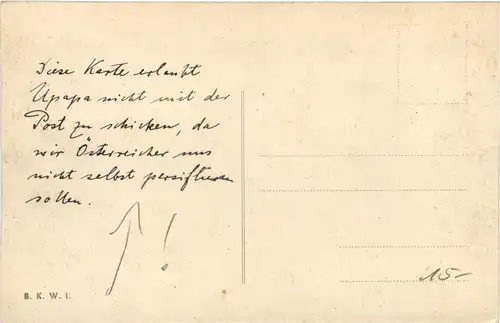 Diese Karte erlaubt
Upapa nicht mit der
Post zu schicken, da
wir Österreicher uns
nicht selbst persiflieren
sollen.
!
15-
B. K. W. I.